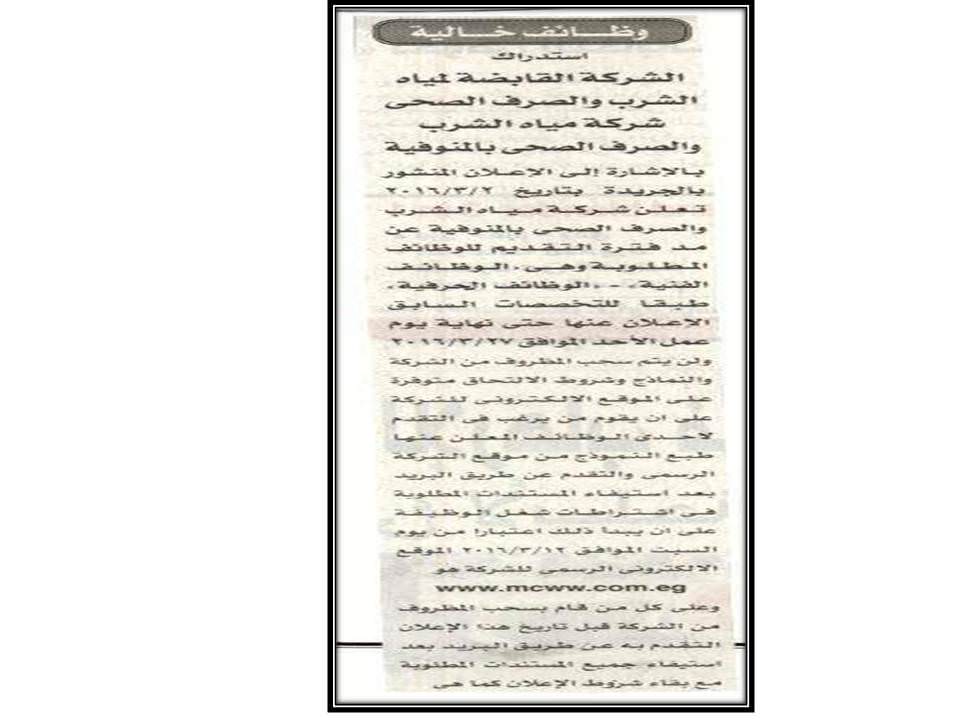 وظائف خالية
استدراك
الشركة القابضة لمياه
الشرب والصرف الصحى
شركة مياه الشرب
والصرف الصحى بالمنوفية
بالاشارة إلى الاعلان المنشور
بالجريدة بتاريخ ٢٠١٦/٣/٢
تعلن شركة مياه الشرب
والصرف الصحى بالمنوفية عن
مد فترة التقديم للوظائف
المطلوبة وهى «الوظائف
الفنية» - «الوظائف الحرفية»
طبقا للتخصصات السابق
الاعلان عنها حتى نهاية يوم
عمل الأحد الموافق ٢٠١٦/٣/٢٧
ولن يتم سحب المظروف من الشركة
والنماذج وشروط الالتحاق متوفرة
على الموقع الالكترونى للشركة
على ان يقوم من يرغب فى التقدم
لاحدى الوظائف المعلن عنها
طبع النموذج من موقع الشركة
الرسمى والتقدم عن طريق البريد
بعد استيفاء المستندات المطلوبة
فى اشتراطات شغل الوظيفة
على ان يبدأ ذلك اعتبارا من يوم
السبت الموافق ٢٠١٦/٣/١٢ الموقع
الالكترونى الرسمى للشركة هو
www.mcww.com.eg
وعلى كل من قام بسحب المظروف
من الشركة قبل تاريخ هذا الإعلان
التقدم به عن طريق البريد بعد
استيفاء جميع المستندات المطلوبة
مع بقاء شروط الإعلان كما هى